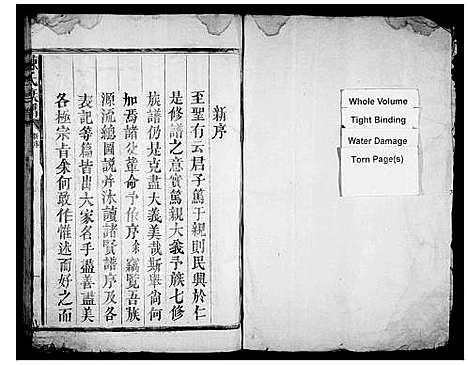 新序
至聖有云君子篤于親則民興於仁
是修譜之意實篤親大義予族七修
族譜仍是克盡大義美哉斯舉尚何
加焉諸父輩命予作序余竊覧吾族
源流總圖說并汰讀諸賢譜序及各
表記等篇皆出大家名手盡善盡美
各極宗旨余何敢作惟述而好之而
Whole Volume
Tight Binding
Water Damage
Torn Page(s)